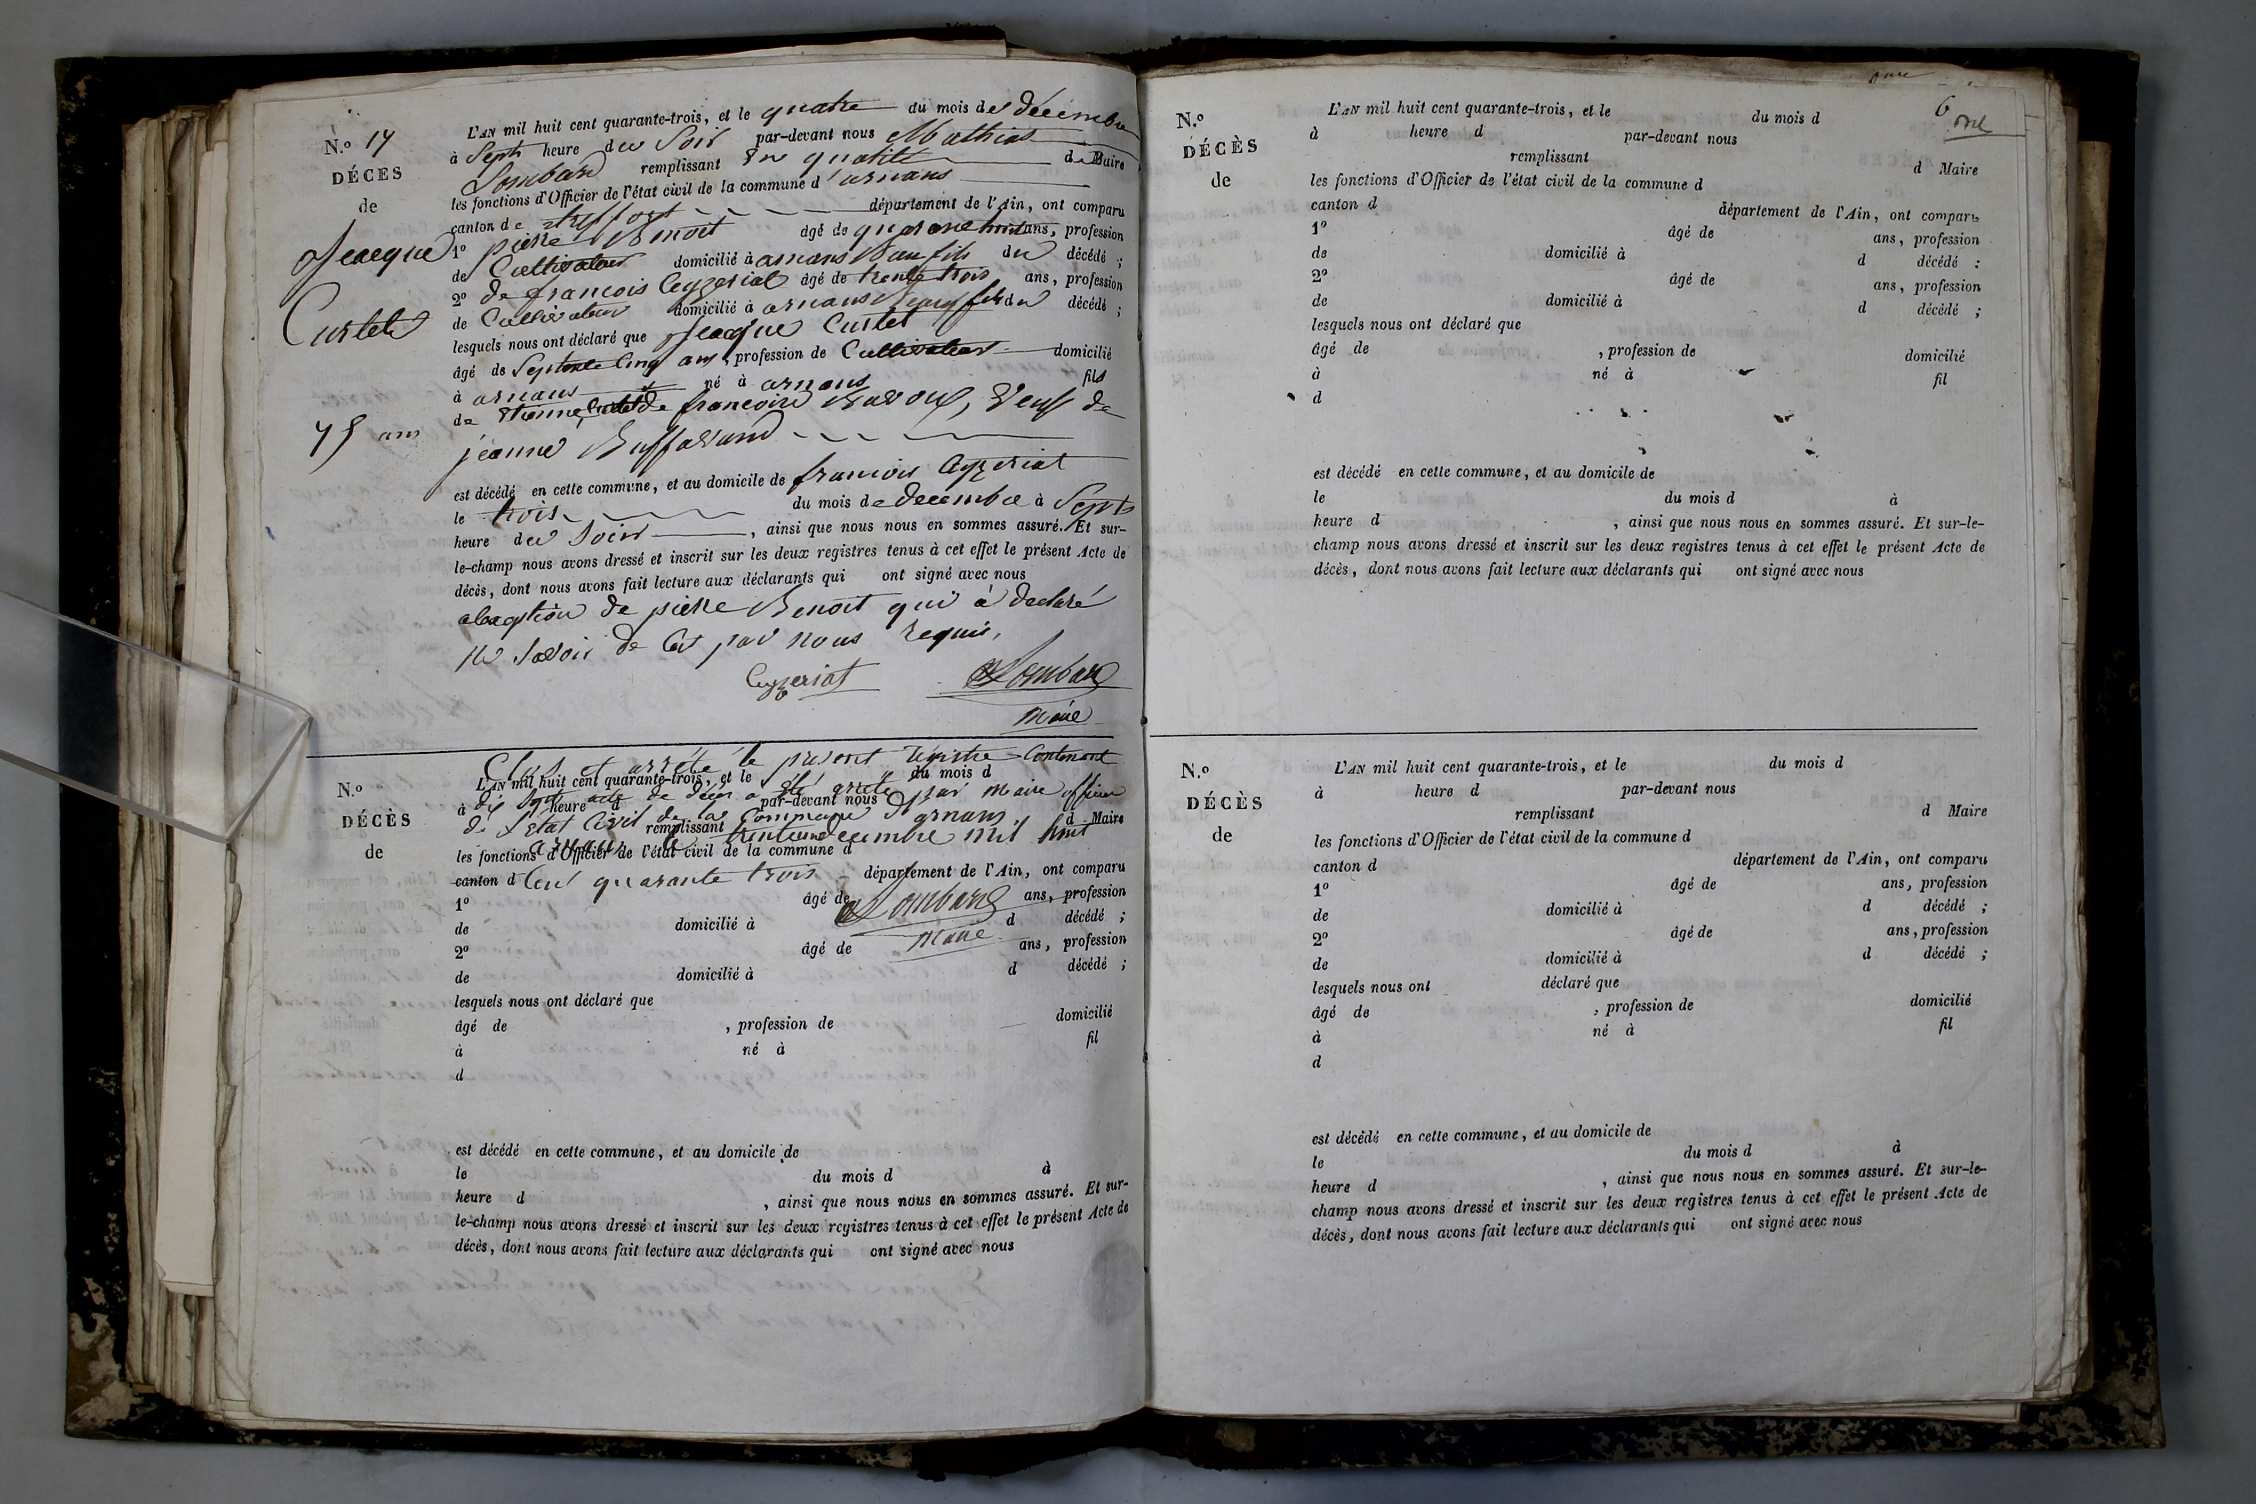 N.º 17
DÉCES
de
Jeacque
Curtet
75 ans
L'AN mil huit cent quarante-trois, et le quatre du mois de décembre
à Sept heure du Soir par-devant nous Mathias
Lombard remplissant En qualité de Maire
les fonctions d'Officier de l'état civil de la commune d'arnans
canton de treffort département de l'Ain, ont comparu
1º pierre Benoit âgé de quarante huit ans, profession
de Cultivateur domicilié à arnans Beau fils du décédé ;
2º de francois Ceyzeriat âgé de trente trois ans, profession
de Cultivateur domicilié à arnans Beau fils du décédé ;
lesquels nous ont déclaré que Jeacque Curtet
âgé de Septente Cinq ans, profession de Cultivateur domicilié
à arnans né à arnans fils
de Etienne Curtet de francoise Bavoux, Veuf de
jeanne Buffavand
est décédé en cette commune, et au domicile de francois Ceyzeriat
le trois du mois de decembre à Sept
heure du Soir , ainsi que nous nous en sommes assuré. Et sur-
le-champ nous avons dressé et inscrit sur les deux registres tenus à cet effet le présent Acte de
décès, dont nous avons fait lecture aux déclarants qui ont signé avec nous
a lexeption de pierre Benoit qui à declaré
ne Savoir de Cet par nous Requis,
Ceyzeriat Lombard
Maire
Clos et arrété le présent régistre Contenant
dix Sept acte de décès a été arrété par Maire officier
de l'état Civil de la Commune d'arnans.
arnans le trente un decembre mil huit
Cent quarante trois
Lombard
Maire
N.º
DÉCÈS
de
L'AN mil huit cent quarante-trois, et le du mois d
à heure d par-devant nous
remplissant d Maire
les fonctions d'Officier de l'état civil de la commune d
canton d département de l'Ain, ont comparu
1º âgé de ans, profession
de domicilié à d décédé ;
2º âgé de ans, profession
de domicilié à d décédé ;
lesquels nous ont déclaré que
âgé de , profession de domicilié
à né à fil
d
est décédé en cette commune, et au domicile de
le du mois d à
heure d , ainsi que nous nous en sommes assuré. Et sur-
le-champ nous avons dressé et inscrit sur les deux registres tenus à cet effet le présent Acte de
décès, dont nous avons fait lecture aux déclarants qui ont signé avec nous
6
N.º
DÉCÈS
de
L'AN mil huit cent quarante-trois, et le du mois d
à heure d par-devant nous
remplissant d Maire
les fonctions d'Officier de l'état civil de la commune d
canton d département de l'Ain, ont comparu
1º âgé de ans, profession
de domicilié à d décédé ;
2º âgé de ans, profession
de domicilié à d décédé ;
lesquels nous ont déclaré que
âgé de , profession de domicilié
à né à fil
d
est décédé en cette commune, et au domicile de
le du mois d à
heure d , ainsi que nous nous en sommes assuré. Et sur-le-
champ nous avons dressé et inscrit sur les deux registres tenus à cet effet le présent Acte de
décès, dont nous avons fait lecture aux déclarants qui ont signé avec nous
N.º
DÉCÈS
de
L'AN mil huit cent quarante-trois, et le du mois d
à heure d par-devant nous
remplissant d Maire
les fonctions d'Officier de l'état civil de la commune d
canton d département de l'Ain, ont comparu
1º âgé de ans, profession
de domicilié à d décédé ;
2º âgé de ans, profession
de domicilié à d décédé ;
lesquels nous ont déclaré que
âgé de , profession de domicilié
à né à fil
d
est décédé en cette commune, et au domicile de
le du mois d à
heure d , ainsi que nous nous en sommes assuré. Et sur-le-
champ nous avons dressé et inscrit sur les deux registres tenus à cet effet le présent Acte de
décès, dont nous avons fait lecture aux déclarants qui ont signé avec nous